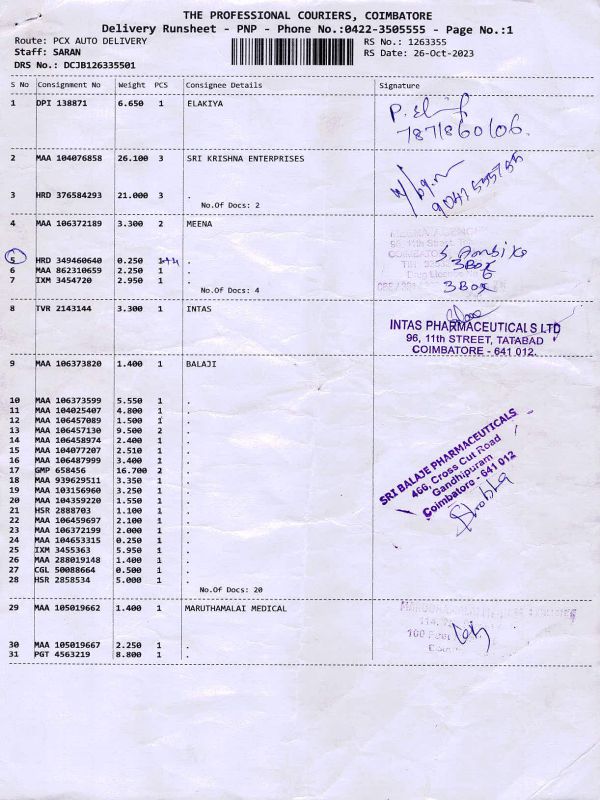 THE PROFESSIONAL COURIERS, COIMBATORE
Delivery Runsheet - PNP - Phone No.:0422-3505555 - Page No.:1
Route: PCX AUTO DELIVERY RS No.: 1263355
Staff: SARAN RS Date: 26-Oct-2023
DRS No.: DCJB126335501
S No Consignment No Weight PCS Consignee Details Signature
1 DPI 138871 6.650 1 ELAKIYA
7871860106.
2 MAA 104076858 26.100 3 SRI KRISHNA ENTERPRISES
3 HRD 376584293 21.000 3 .
No.Of Docs: 2
4 MAA 106372189 3.300 2 MEENA
5 HRD 349460640 0.250 .
3 Box
6 MAA 862310659 2.250 1 .
7 IXM 3454720 2.950 1 .
3 Box
No.Of Docs: 4
8 TVR 2143144 3.300 1 INTAS
INTAS PHARMACEUTICALS LTD
96, 11th STREET, TATABAD
COIMBATORE - 641 012.
9 MAA 106373820 1.400 1 BALAJI
10 MAA 106373599 5.550 1 .
11 MAA 104025407 4.800 1 .
12 MAA 106457089 1.500 1 .
13 MAA 106457130 9.500 2 .
14 MAA 106458974 2.400 1 .
15 MAA 104077207 2.510 1 .
16 MAA 106487999 3.400 1 .
17 GMP 658456 16.700 2 .
18 MAA 939629511 3.350 1 .
19 MAA 103156960 3.250 1 .
20 MAA 104359220 1.550 1 .
21 HSR 2888703 1.100 1 .
22 MAA 106459697 2.100 1 .
23 MAA 106372199 2.000 1 .
24 MAA 104653315 0.250 1 .
25 IXM 3455363 5.950 1 .
26 MAA 288019148 1.400 1 .
27 CGL 50088664 0.500 1 .
28 HSR 2858534 5.000 1 .
No.Of Docs: 20
SRI BALAJE PHARMACEUTICALS
466, Cross Cut Road
Gandhipuram
Coimbatore - 641 012
29 MAA 105019662 1.400 1 MARUTHAMALAI MEDICAL
30 MAA 105019667 2.250 1 .
31 PGT 4563219 8.800 1 .